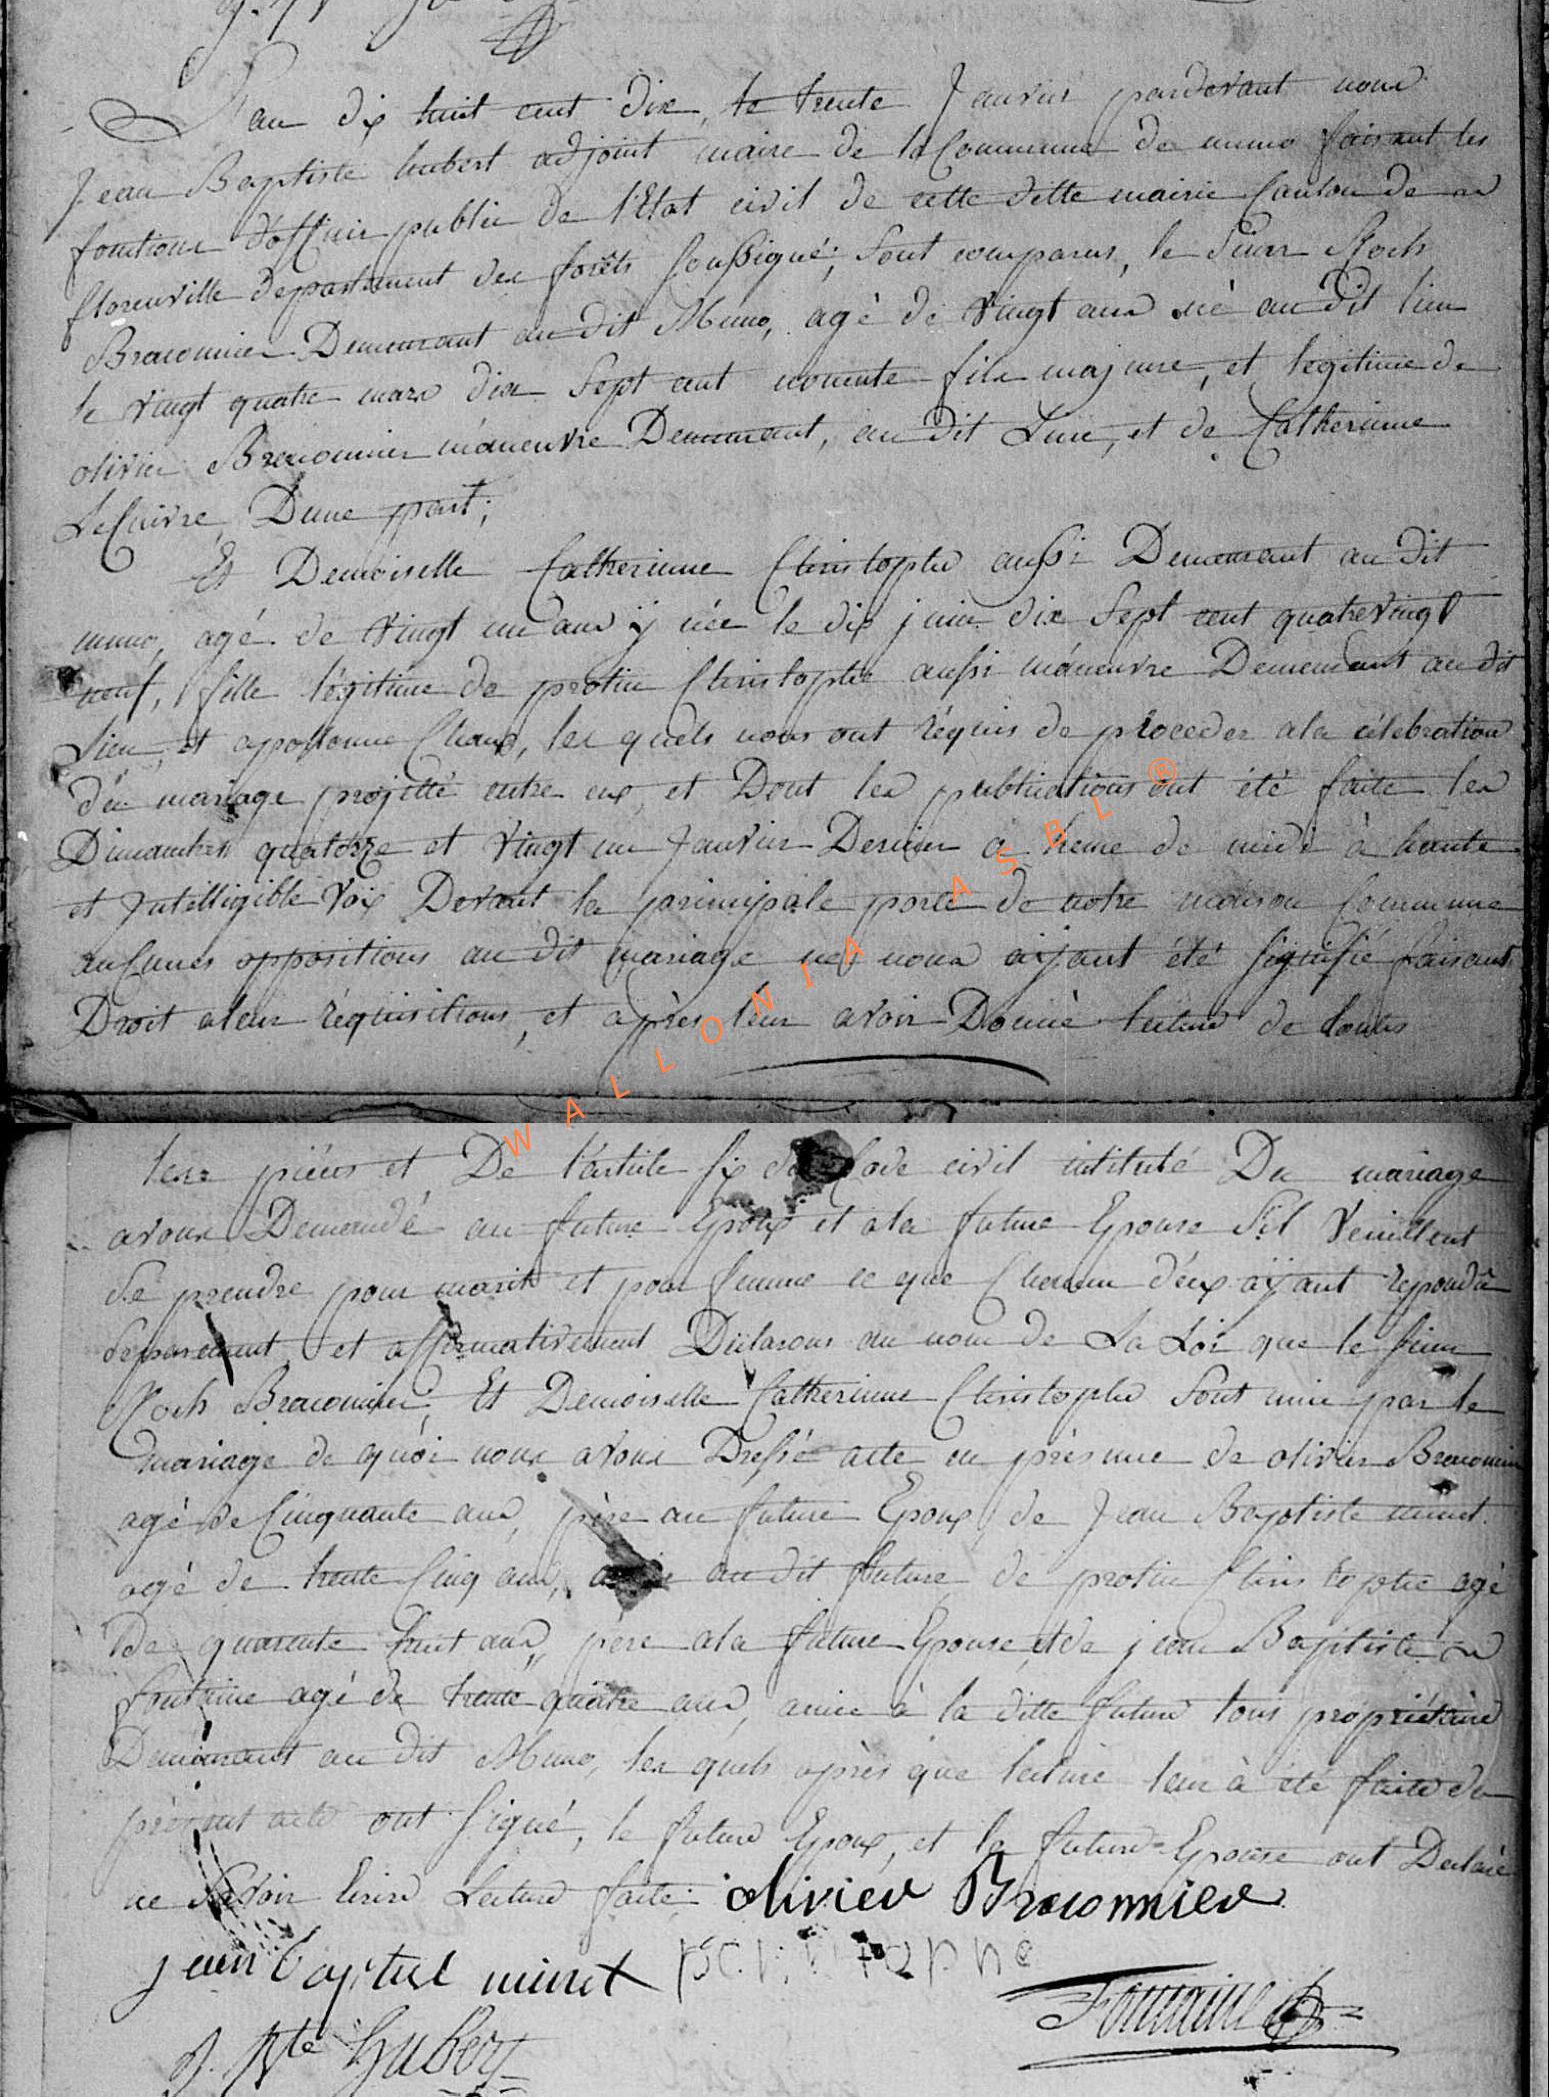 L'an dix huit cent dix, le trente Janvier pardevant nous
Jean Baptiste hubert adjoint maire de la Commune de muno faisant les
fonctions d'officier public de l'Etat civil de cette ditte mairie Canton de
florenville departement des forêts soussigné, sont comparus, le Sieur Roch
Braconnier Demeurant au dit Muno, agé de vingt ans né au dit lieu
le vingt quatre mars dix sept cent nonente fils majeure, et legitime de
olivier Braconnier manoeuvre Demeurant, au dit Lieu, et de Catherinne
LeCuivre, Dune part;
Et Demoiselle Catherinne Christophe aussi Demeurant au dit
muno, agé de vingt un ans ÿ née le dix juin dix sept cent quatrevingt
neuf, fille légitime de protin Christophe aussi manoeuvre Demeurant au dit
Lieu, et appolonne, les quels nous ont réquis de proceder a la célebration
du mariage projetté entre eux, et Dont les publications ont été faite les
Dimanches quatorze et vingt un Janvier Dernier a heure de midi à haute
et Intelligible voix Devant la principale porte de notre maison Commune
auCunes oppositions au dit mariage ne nous aÿant été signifié faisant
Droit a leur réquisitions, et après leur avoir Donné lecture de toutes
les pièces et De l'article six du Code civil intitulé Du mariage
avons Demandé au future Epoux et a la future Epouse S'il veuillent
se prendre pour marit et pour femme ce que Chacun d'eux aÿant repondu
separement et affirmativement Déclarons au nom de La Loi que le sieur
Roch Braconnier, Et Demoiselle Catherinne Christophe sont unie par le
mariage de quoi nous avons Dressé acte en présence de olivier Braconnier
agé de Cinquante ans, père au future Epoux, de Jean Baptiste minet
agé de trente Cinq ans, au dit future, de protin Christophe agé
De quarente huit ans, père a la future Epouse et de jean Baptiste
fontaine agé de trente quatre ans, amie à la ditte future tous propriétaire
Demeurant au dit Muno, les quels après que lecture leur à été faite du
présent acte ont signé, le future Epoux, et la future Epouse ont Declaré
ne savoir Ecrire Lecture faite. olivier Braconnier
jean baptiste minet
Fontaine
J. Bte Hubert
W A L L O N I A A S B L ®